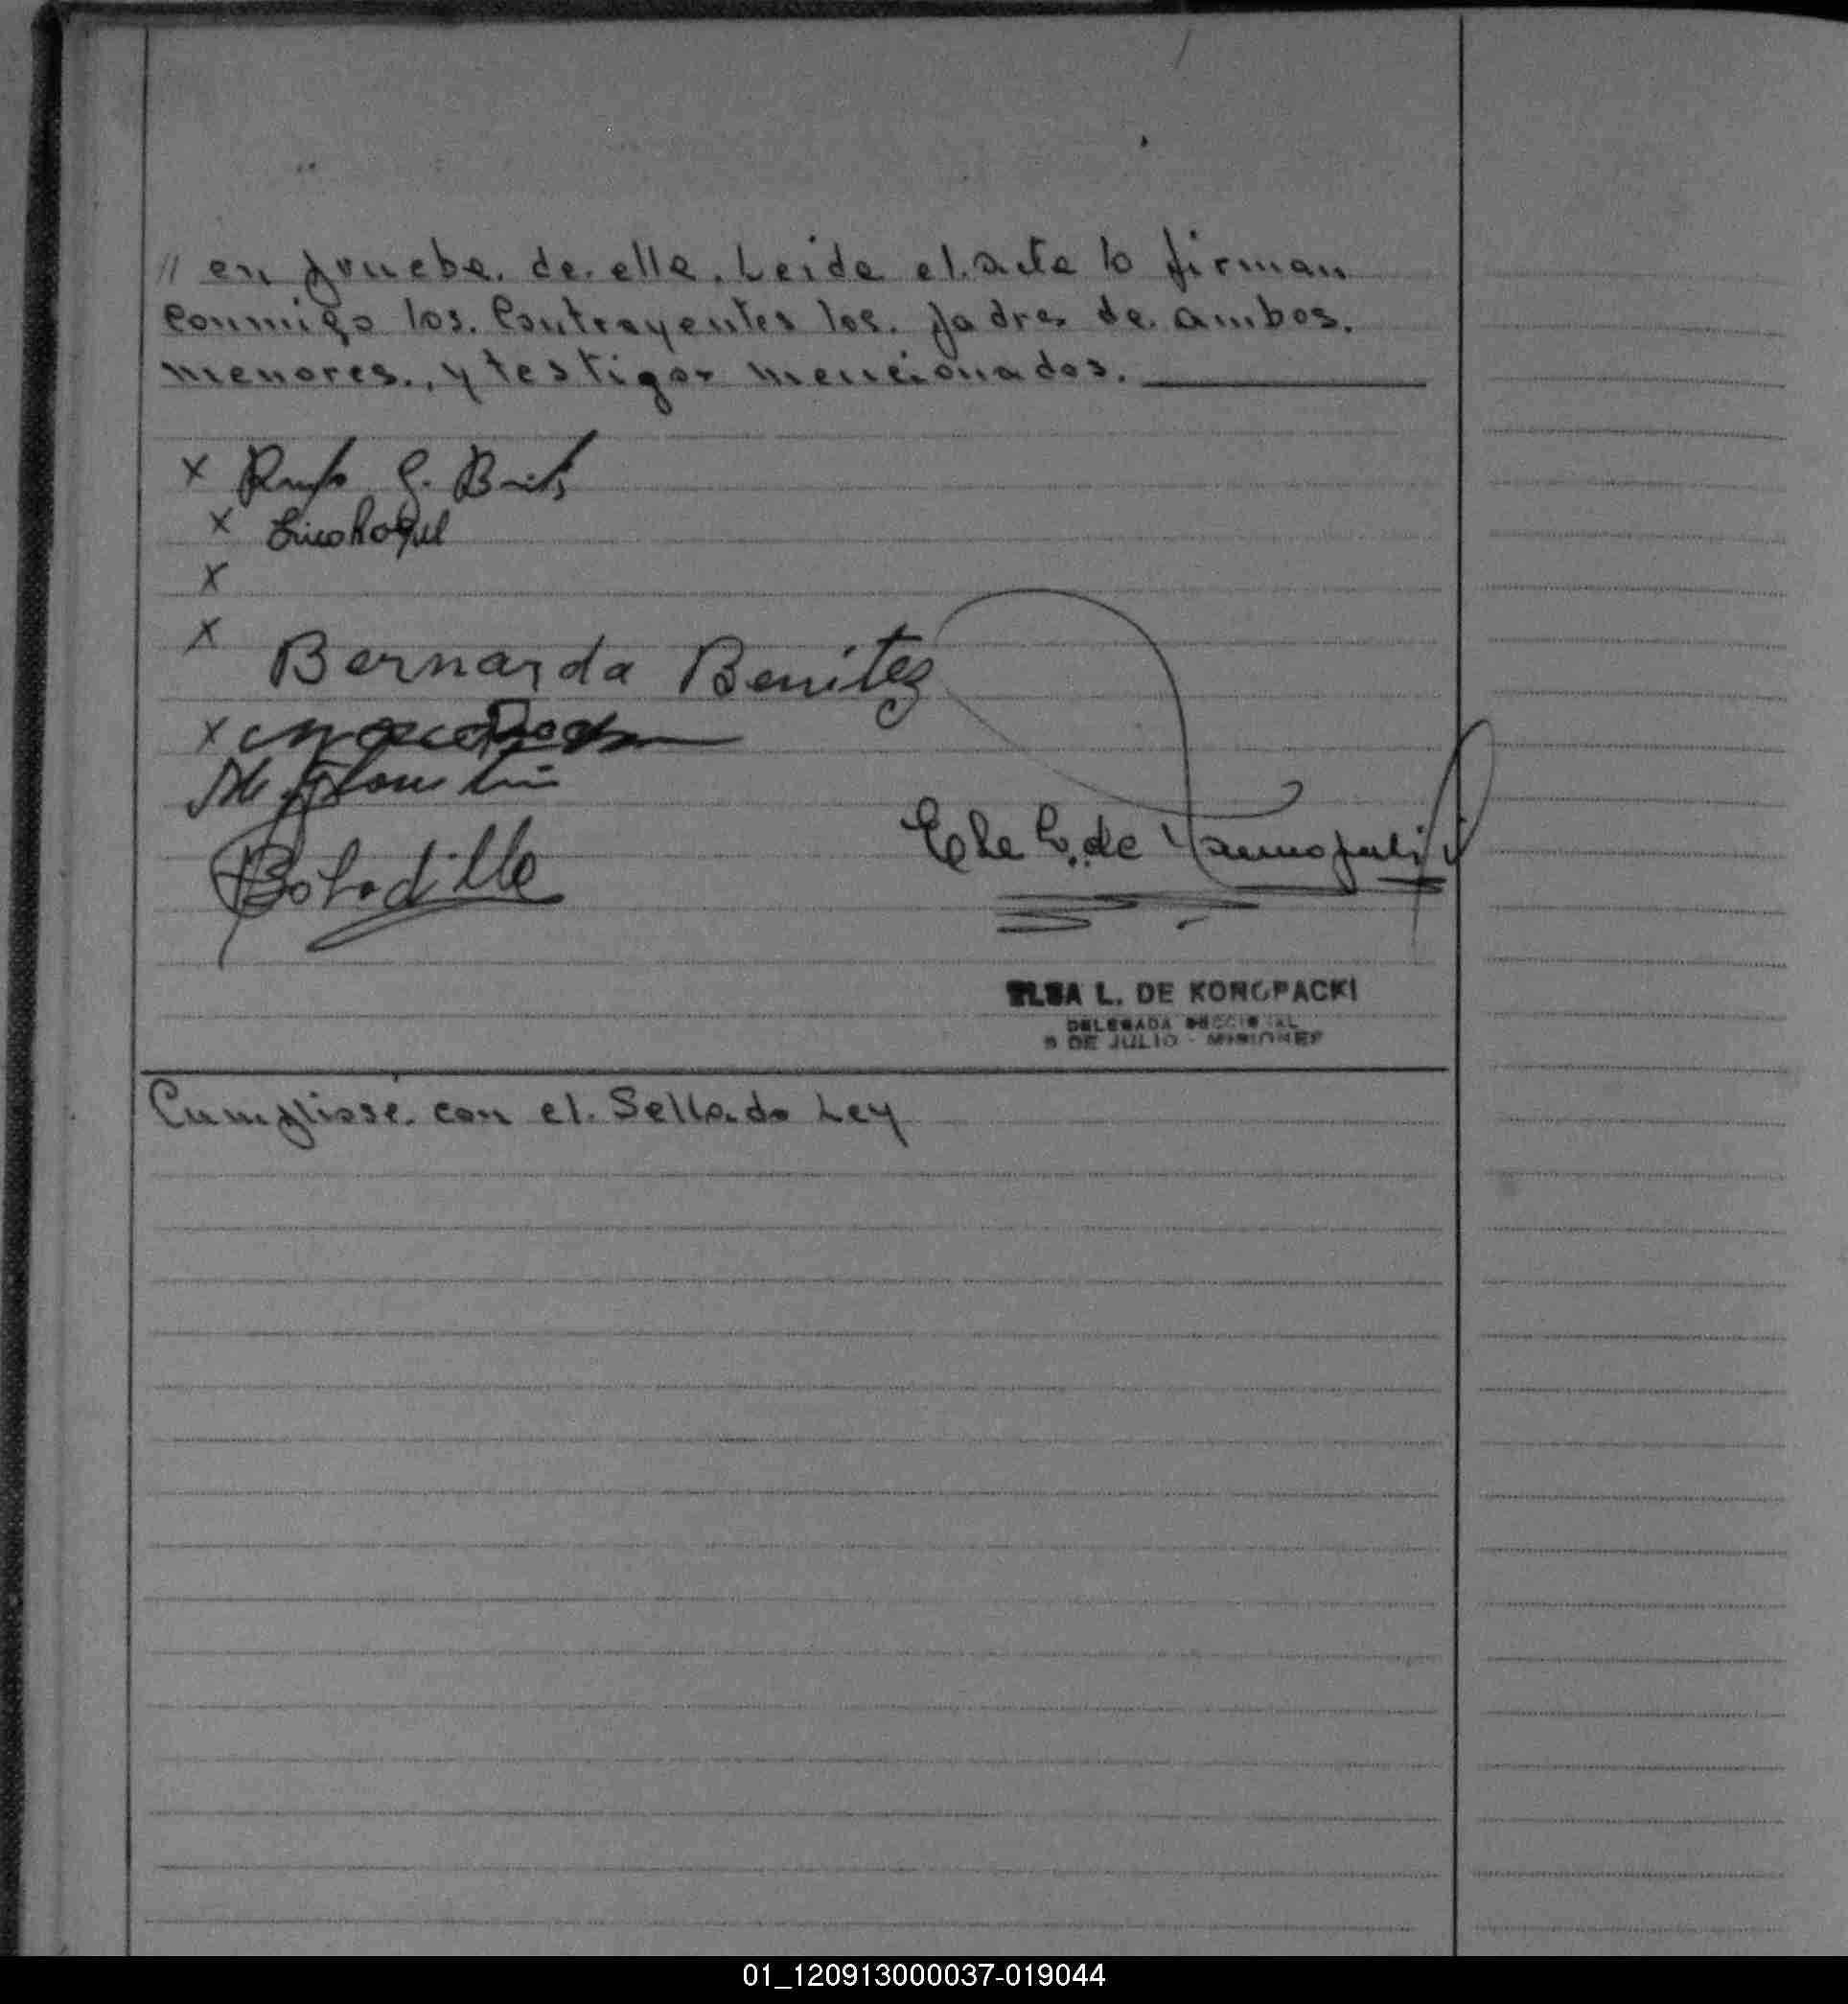 // en prueba. de. ella. Leida el. acta lo firman
conmigo los. Contrayentes los. padres de. ambos.
menores., y testigos mencionados.
x Rufo G. Brits
x
x
x
Bernarda Benitez
x
Bobadilla
Elsa L. de
ELSA L. DE KOROPACKI
DELEGADA SECCIONAL
9 DE JULIO - MISIONES
Cumpliose. con el. Sellado Ley
01_120913000037-019044